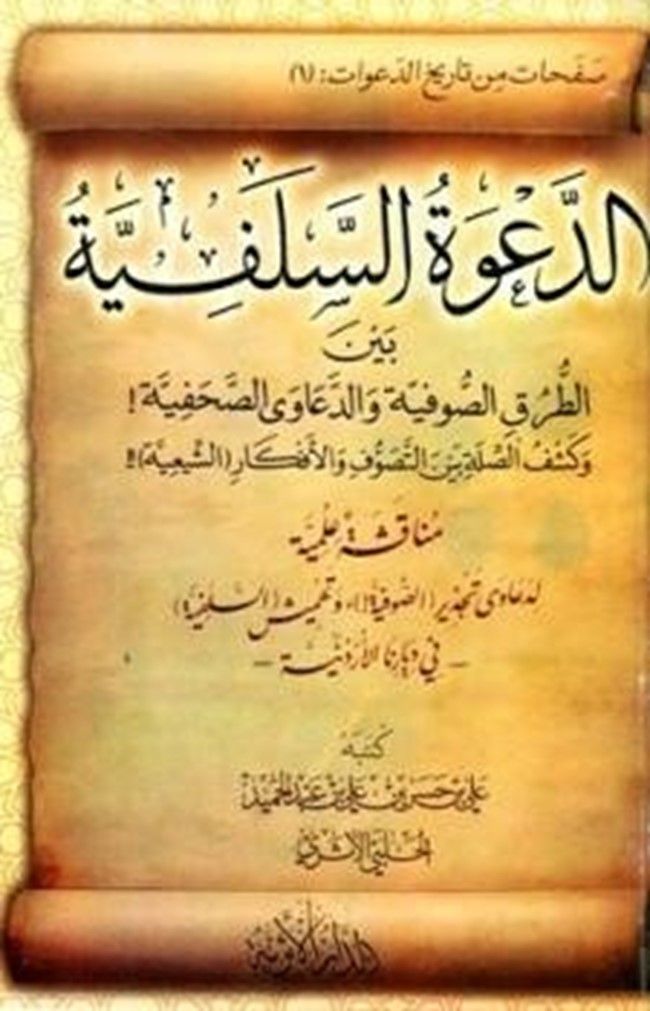 صَفَحات مِن تاريخ الدَّعوات: (٦)
الدَّعْوَةُ السَّلَفِيَّةُ
بَيْنَ
الطُّرُقِ الصُّوفيَّة وَالدَّعَاوَى الصَّحَفِيَّة!
وَكَشْفُ الصِّلَةِ بَيْنَ التَّصَوُّفِ وَالأَفْكَارِ (الشِّيعِيَّة)!!
مُناقَشَة عِلْمِيَّة
لدَعَاوَى تَجْذِيرِ (الصُّوفِيَّة!)، وتَهْمِيشِ (السَّلَفِيَّة)
- في دِيَارِنَا الأُرْدُنِيَّة -
كَتَبَهُ
عَلِيُّ بْنُ حَسَن بْنِ عَلِيِّ بْنِ عَبْدِ الحَمِيدِ
الحَلَبِيُّ الأَثَرِيُّ
الدَّارُ الأَثَرِيَّة